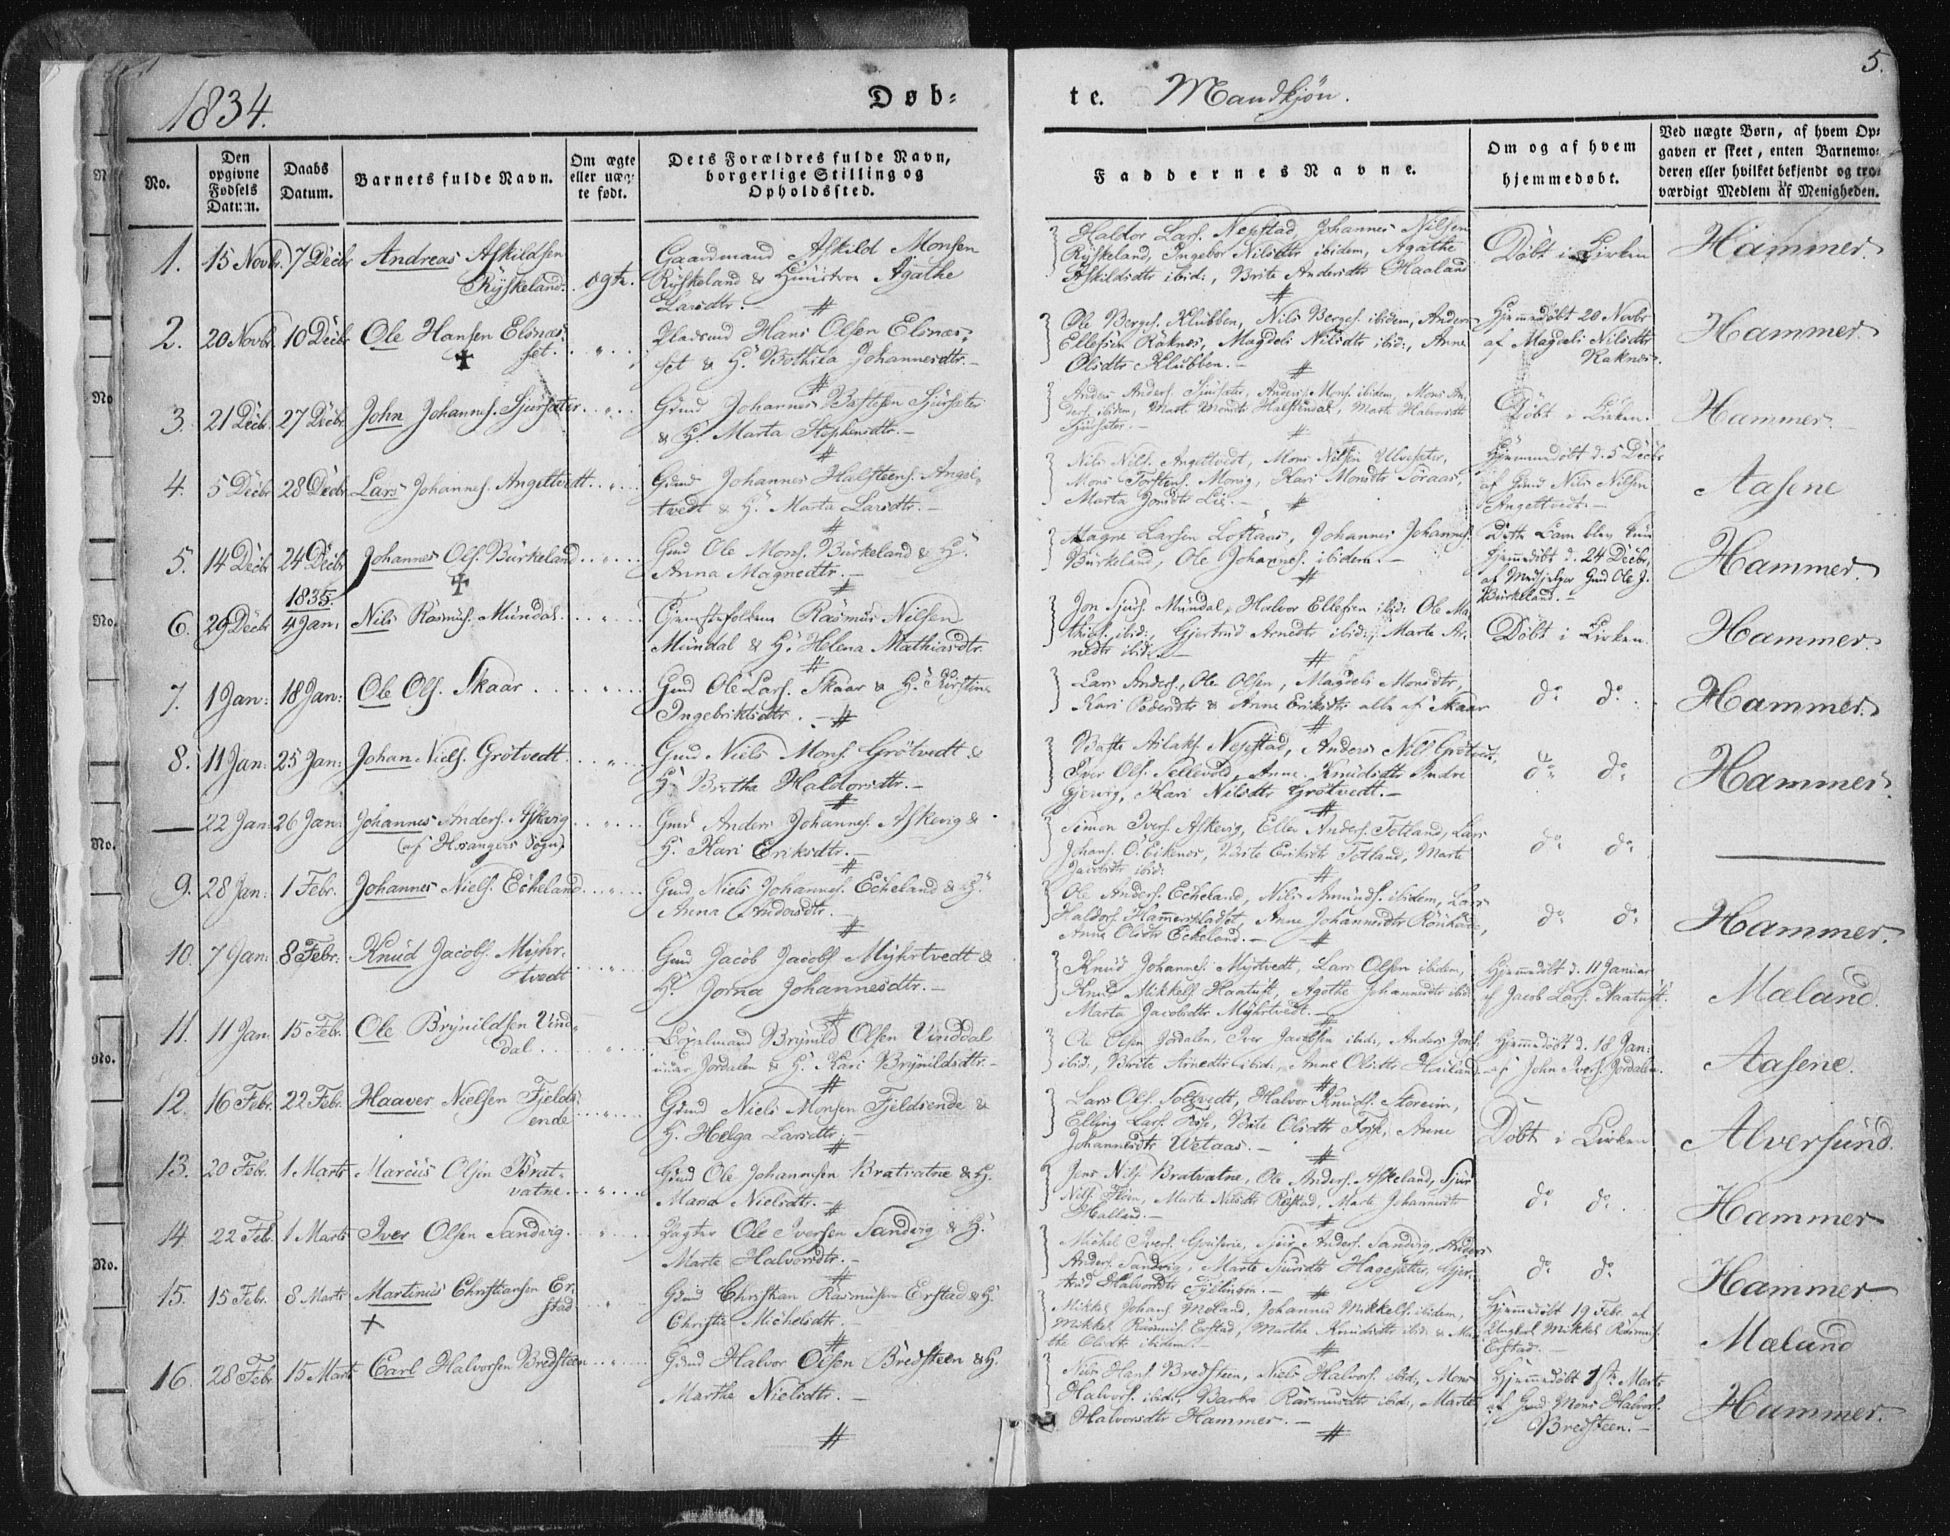 1834.
Døb-
te.
Mandkjøn.
5.
No.
Den opgivne Fødsels Datum.
Daabs Datum.
Barnets fulde Navn.
Om ægte eller uægte født.
Dets Forældres fulde Navn, borgerlige Stilling og Opholdssted.
Faddernes Navne.
Om og af hvem hjemmedøbt.
Ved uægte Børn, af hvem Opgaven er skeet, enten Barnemoderen eller hvilket bekjendt og troværdigt Medlem af Menigheden.
1. 15 Novbr. 7 Decbr Andreas Askildsen
Rÿskeland. ægte.
Gaardmand Askild Monsen
Rÿskeland & Hüüstroe Agathe
Larsdtr.
Haldor Lars. Nepstad, Johannes Nilsen
Rÿskeland, Ingebor Nilsdtr ibidem, Agathe
Askildsdtr ibid:, Brite Andersdtr Haaland
Døbt i Kirken
Hammer.
2. 20 Novbr 10 Decbr Ole Hansen Elsnæs-
set.
Hans Olsen Elsnæs-
set & H. Johannesdtr.
Ole Berges. Klubben, Nils Berges. ibidem, Anders
Ellefsen Raknes, Magdeli Nilsdtr ibid:, Anne
Olsdtr Klubben.
Hjemmedøbt 20 Novbr
af Magdeli Nilsdtr
Raknes.
Hammer
3. 21 Decbr. 27 Decbr John Johannes. Sjürsæter
Gmd Johannes Sjürsæter
& H. Marta Stephensdtr.
Døbt i Kirken.
Hammer.
4. 5 Decbr 28 Decbr Lars Johannes. Angeltvedt
Gmd Johannes Halsteens. Angel-
tvedt & H. Marta Larsdtr.
Nils Nils. Angeltvedt, Mons Nilsen
Marta Jonsdtr Lie.
Hjemmedøbt d. 5 Decbr
af Gmd Nils Nilsen
Angeltvedt.
Aasene
5. 14 Decbr 24 Decbr Johannes Ols. Bürkeland
Gmd Ole Mons. Bürkeland & H.
Anna Magnedtr.
Magne Larsen Loftaas, Johannes Johannes.
Bürkeland, Ole Johannes. ibidem.
Dette Barn blev kun
hjemmedøbt d. 24 Decbr,
af Medhjelper Gmd Ole J.
Bürkeland.
Hammer.
1835.
6. 29 Decbr 4 Jan: Nils Rasmus. Mündal
Rasmus Nilsen
Mündal & H. Helena Mathiasdtr.
Jon Sjürs. Mündal, Halvor Ellefsen ibid: Ole Ma-
thias. ibid:, Gjertrud Arnedtr ibid:, Marte Ar-
nedtr ibid:
Døbt i Kirken.
Hammer.
7. 1 Jan: 18 Jan: Ole Ols. Skaar
Gmd Ole Lars. Skaar & H. Kirstine
Ingebriktsdtr.
Lars Anders., Ole Olsen, Magdeli Monsdtr,
Kari Pedersdtr & Anne Eriksdtr alle af Skaar
do do
Hammer.
8. 11 Jan: 25 Jan: Johan Niels. Grötvedt
Gmd Niels Mons. Grötvedt &
H. Bretha Haldorsdtr.
Baste Aslaks. Nepstad, Anders Nils. Grötvedt,
Iver Ols. Sellevold, Anne Knudsdtr Indre
Gjervig, Kari Nilsdtr Grötvedt.
do do
Hammer.
— 22 Jan: 26 Jan: Johannes Anders. Askvig
(af Hosangers Sogn)
Gmd Anders Johannes. Askevig &
H. Kari Eriksdtr.
Simon Ivers. Askevig, Ellen Anders. Totland, Lars
Johans. Ö. Eiknes, Brite Eriksdtr Totland, Marte
Jacobsdtr ibid:
do do
9. 28 Jan: 1 Febr. Johannes Niels. Echeland
Gmd Niels Johannes. Echeland & H.
Anna Andersdtr.
Ole Anders. Echeland, Nils Amunds. ibidem, Lars
Haldors. Hammerspladset, Anne Johannesdtr
Anne Olsdtr Echeland.
do do
Hammer.
10. 7 Jan: 8 Febr. Knüd Jacobs. Myhr-
tvedt
Gmd Jacob Jacobs Myhrtvedt &
H. Jorna Johannesdtr.
Knüd Johannes. Myrtvedt, Lars Olsen ibidem,
Knud Mikkels Haatuft, Agathe Johannesdtr ibid:
Marta Jacobsdtr Myhrtvedt.
Hjemmedøbt d. 11 Januar
af Jacob Lars. Haatuft.
Mæland.
11. 11 Jan: 15 Febr. Ole Brÿnildsen Vind-
dal
Brÿnild Olsen Vinddal
under Jordalen & H. Kari Brÿnildsdtr.
Ole Olsen Jordalen, Iver Jacobsen ibid:, Anders Jons.
ibid:, Brite Arnedtr ibid:, Anne Olsdtr Hailand
Hjemmedøbt d. 18 Jan:
af John Ivers. Jordalen.
Aasene.
12. 16 Febr. 22 Febr. Haaver Nielsen Fjelds-
ende
Gmd Niels Monsen Fjeldsende &
H. Helga Larsdtr.
Lars Ols. Soltvedt, Halvor Knuds. Storeim,
Elling Lars. Brite Olsdtr Anne
Johannesdtr Wetaas.
Døbt i Kirken
Alversund.
13. 20 Febr. 1 Marts Marcus Olsen Brat-
vatne
Gmd Ole Johannesen Bratvatne & H.
Maria Nielsdtr.
Jens Nils Bratvatne, Ole Anders. Askeland, Sjur
Nils. Marte Nilsdtr Marte Johannesdtr
Halland.
do do
Hammer
14 22 Feb. 1 Marts Iver Olsen Sandvig.
Ole Iversen Sandvig & H.
Marte Halvorsdtr.
Michel Ivers. Sjur Anders. Sandvig, Anders
Anders. Sandvig, Marte Sjursdtr Hagesæter, Gjer-
trud Halvorsdtr
do do
Hammer
15. 15 Febr. 8 Marts Martinus Christiansen Er-
stad
Gmd Christian Rasmusen Erstad & H.
Christie Michelsdtr.
Mikkel Johans. Mæland, Johannes Mikkels. ibidem,
Mikkel Rasmus. Erstad, Marthe Knudsdtr ibid: & Mar-
the Olsdtr ibidem.
Hjemmedøbt 19 Febr. af
Ungkarl Mikkel Rasmus.
Erstad.
Mæland
16. 28 Febr 15 Marts Carl Halvorsen Bredsteen
Gmd Halvor Olsen Bredsteen & H.
Marthe Nielsdtr.
Nils Hans Bredsteen, Niels Halvors. ibid:, Mons
Halvors. ibid:, Barbro Rasmusdtr ibid:, Marte
Halvorsdtr Hammer.
Hjemmedøbt 1ste Marts
af Gmd Mons Halvors.
Bredsteen.
Hammer.